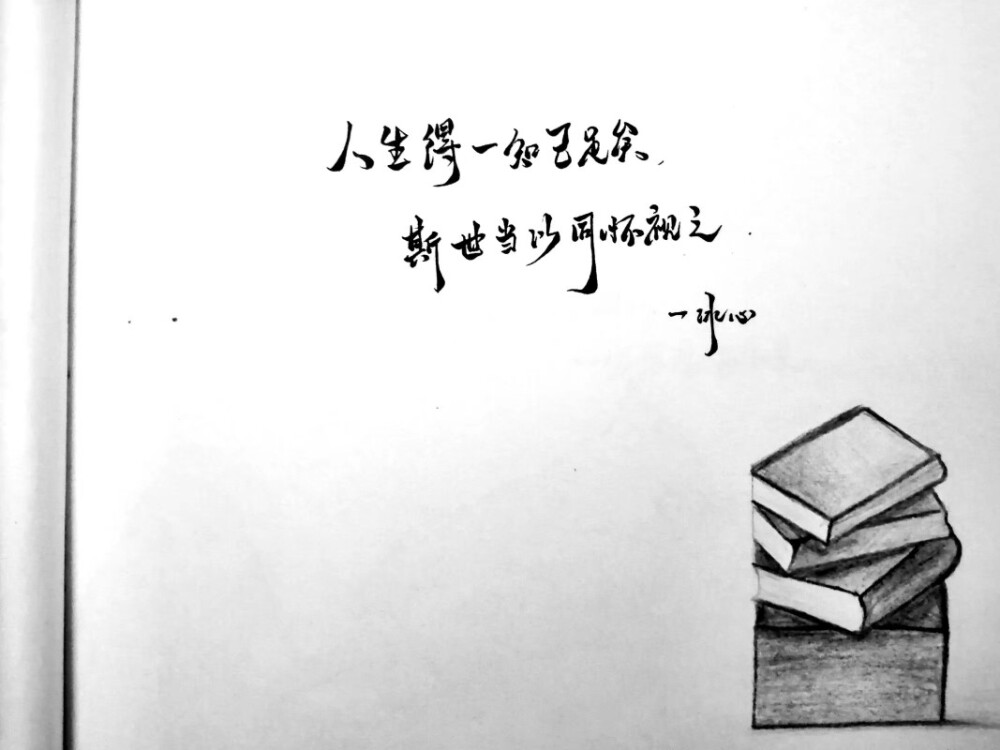 人生得一知己足矣,
斯世当以同怀视之.
一冰心